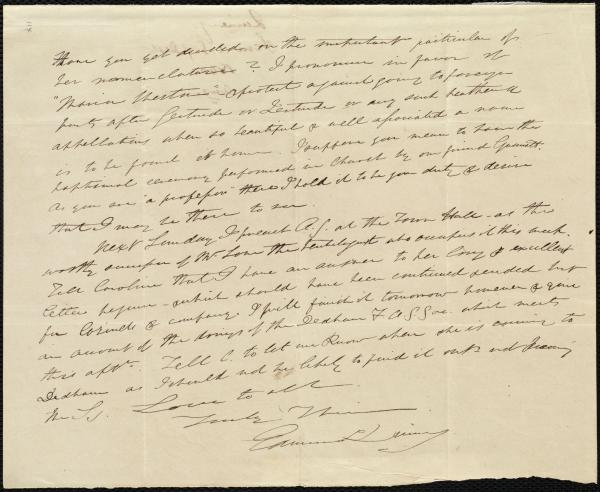 Have you yet decided on the important particular of
her nomenclature? I pronounce in favor of
"Maria Weston" & protest against going to foreign
parts after Gertrude or Gertrude or any such heathenish
appellations when so beautiful & well associated a name
is to be found at home. I suppose you mean to have the
baptismal ceremony performed in Church by our friend
as you are a professor there I hold it to be your duty & desire
that I may be there to see.
Next Sunday I preach A.S. at the Town Hall - as the
worthy successor of Mr the who occupies it this week.
Tell Caroline that I have an answer to her long & excellent
letter begun - which should have been continued & ended but
for & company. I will finish it tomorrow however & give
an account of the doings of the Dedham F. A S Soc. which meets
this aftn. Tell C. to let me know when she is coming to
Dedham as I should not be likely to find it out not
the Love to all
Truly Thine
Edmund Quincy